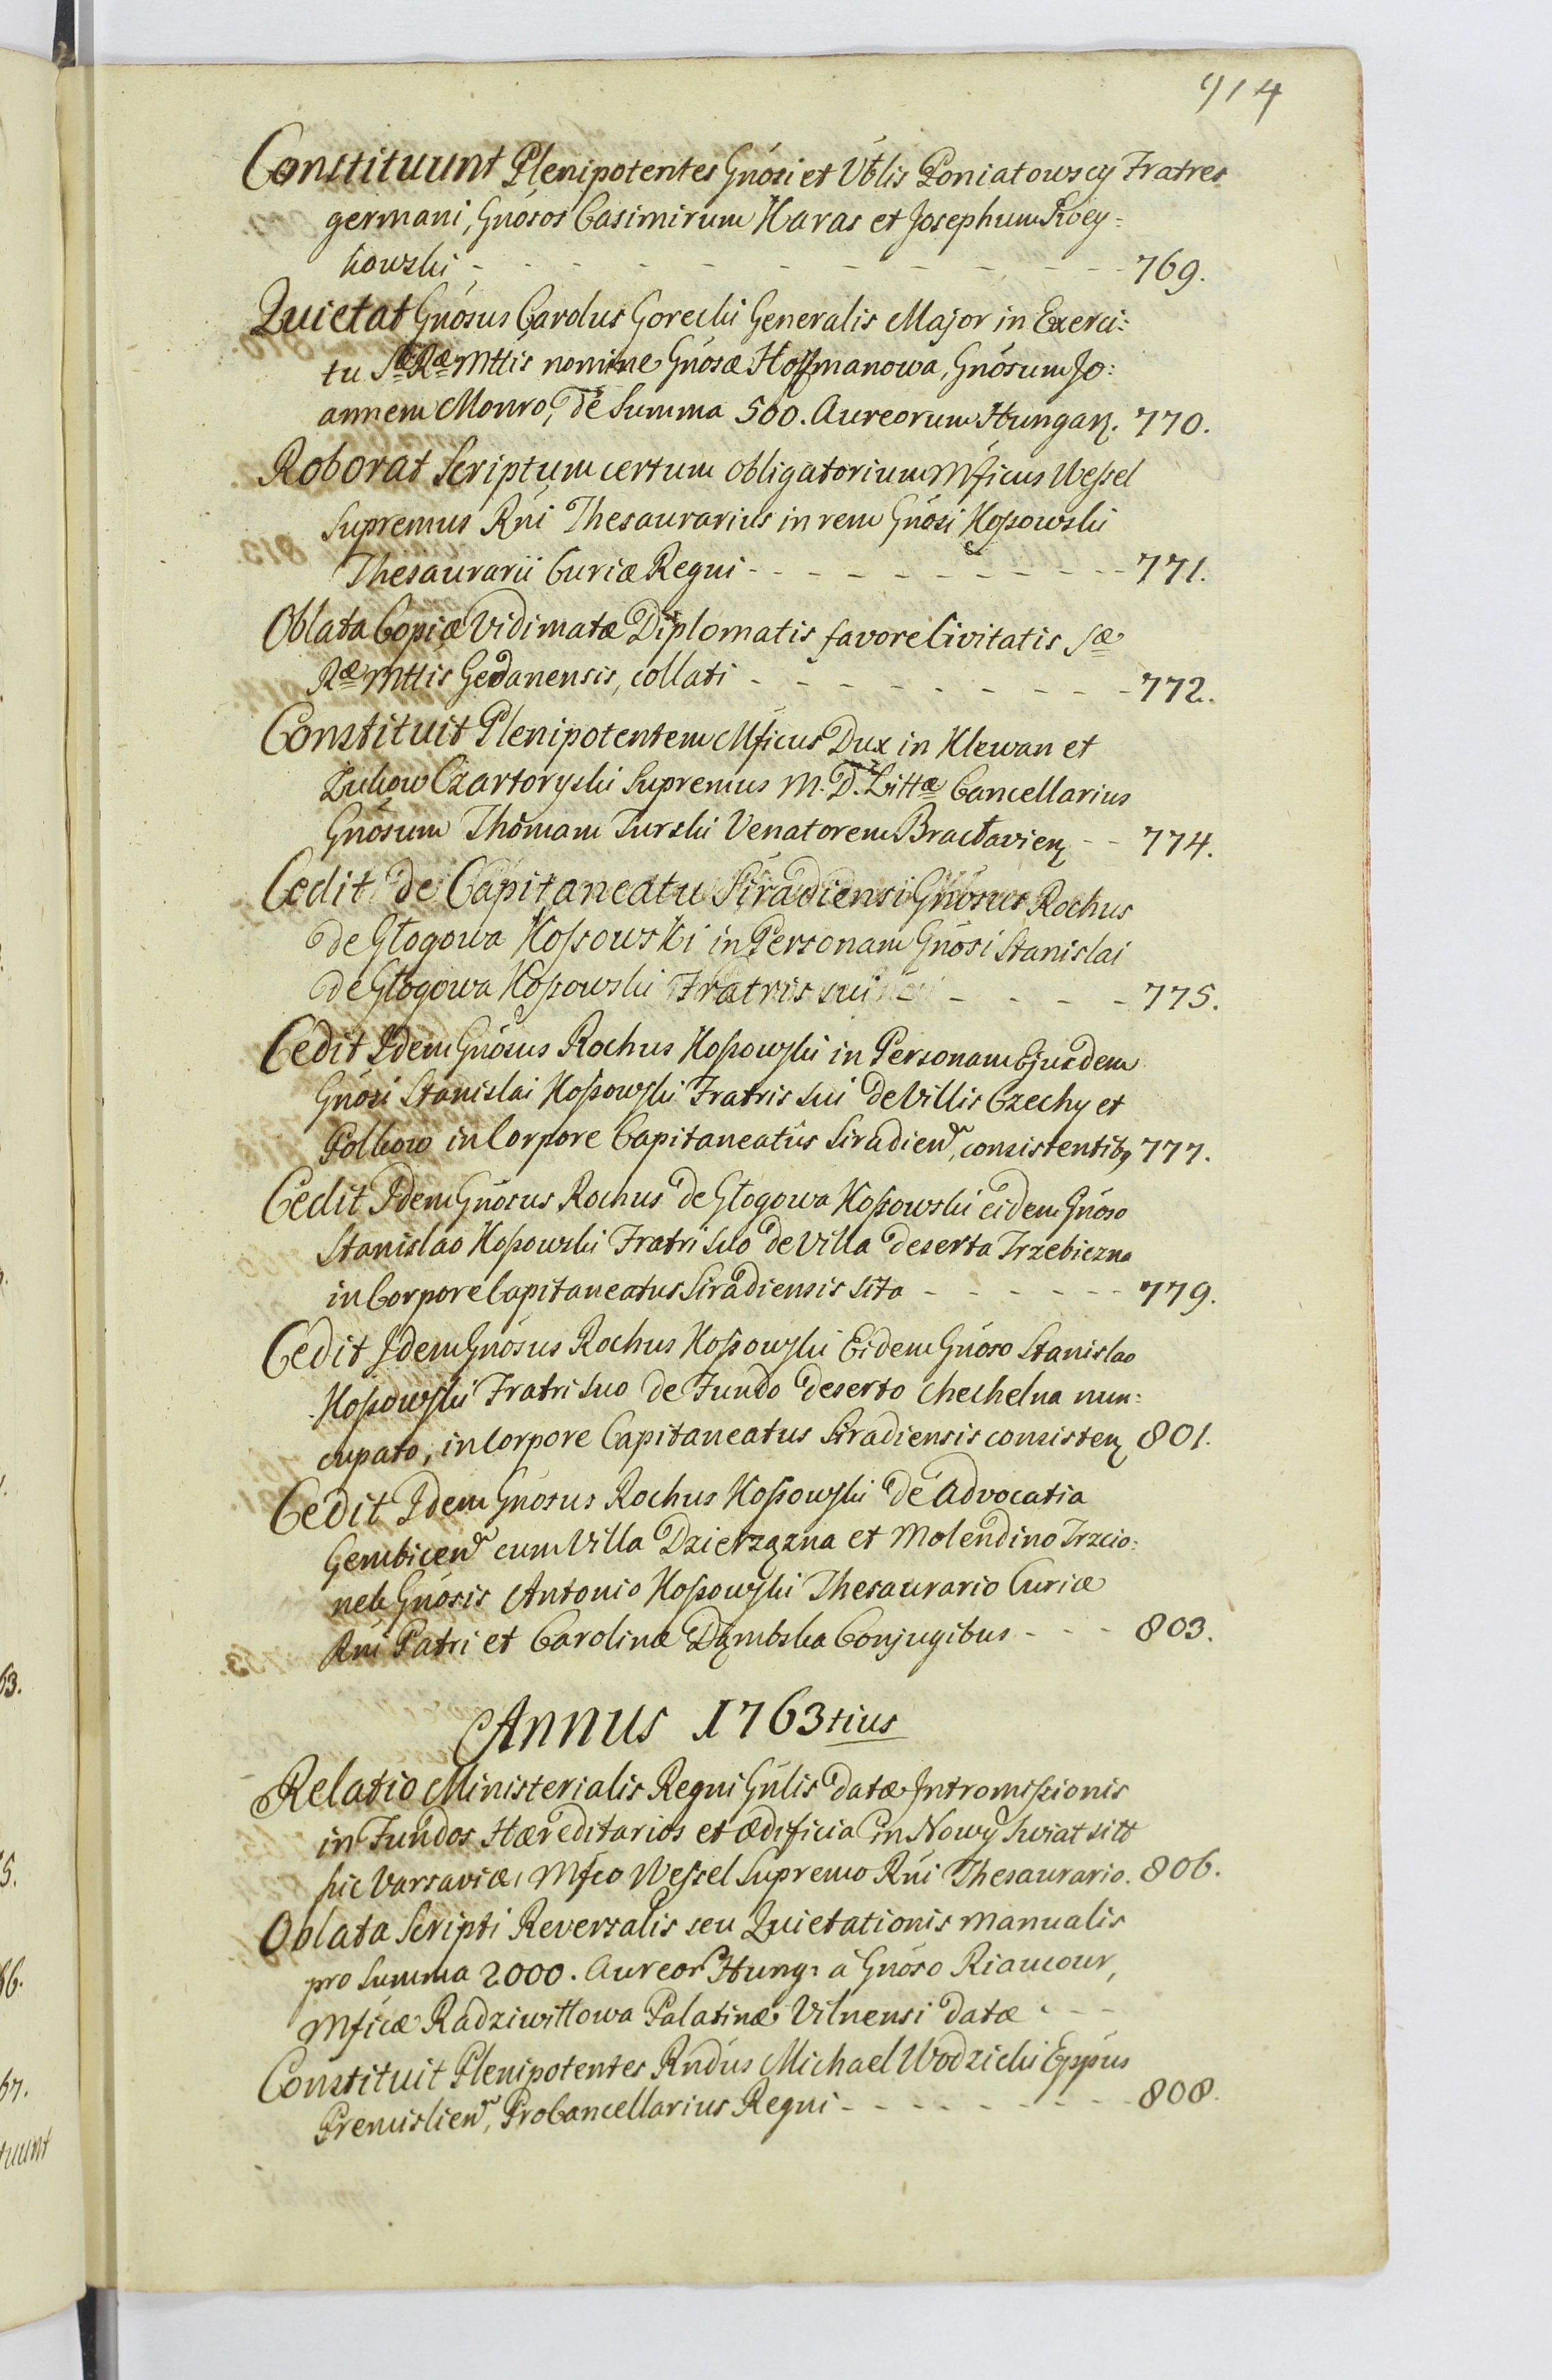 914
Constituunt Plenipotentes Gnosi et Vtlis Poniatowscy Fratres
germani, Gnosos Casimirum Karas et Josephum
kowski - - - - - - - - - - 769.
Quietat Gnosus Carolus Gorecki Generalis Major in Exerci:
tu Sæ Ræ Mttis nomine Gnosæ Hoffmanowa, Gnosum Jo:
annem Monro, de Summa 500. Aureorum Hungar. 770.
Roborat Scriptum certum obligatorium Mficus Wessel
Supremus Rni Thesaurarius in rem Gnosi Kossowski
Thesaurarii Curiæ Regni - - - - - - - - - 771.
Oblata Copiæ Vidimatæ Diplomatis favore Civitatis Sæ
Ræ Mttis Gedanensis, collati - - - - - - - - - 772.
Constituit Plenipotentem Mficus Dux in Klewan et
Zukow Czartoryski Supremus M. D. Littæ Cancellarius
Gnosum Thomam Turski Venatorem Bractavien - - 774.
Cedit de Capitaneatu Siradiensi Gnosus Rochus
de Głogowa Kossowski in Personam Gnosi Stanislai
de Głogowa Kossowski Fratris sui - - - - 775.
Cedit Idem Gnosus Rochus Kossowski in Personam Ejusdem
Gnosi Stanislai Kossowski Fratris sui de Villis Czechy et
Polkow in Corpore Capitaneatûs Siradien, consistentibq 777.
Cedit Idem Gnosus Rochus de Głogowa Kossowski eidem Gnoso
Stanislao Kossowski Fratri suo de Villa deserta Trzebiezna
in Corpore Capitaneatus Siradiensis sita - - - - - - 779.
Cedit Idem Gnosus Rochus Kossowski Eidem Gnoso Stanislao
Kossowski Fratri suo de Fundo deserto Chechelna nun:
cupato, in Corpore Capitaneatus Siradiensis consisten 801.
Cedit Idem Gnosus Rochus Kossowski de Advocatia
Gembicen cum Villa Dzierzązna et Molendino Trzcio:
nek Gnosis Antonio Kossowski Thesaurario Curiæ
Rni Patri et Carolinæ Dąmbska Conjugibus - - - 803.
Annus 1763tius
Relatio Ministerialis Regni Gnlis datæ Intromissionis
in Fundos Hæreditarios et ædificia in Nowy Swiat sitt
hic Varsaviæ, Mfco Wessel Supremo Rni Thesaurario. 806.
Oblata Scripti Reversalis seu Quietationis manualis
pro Summa 2000. Aureor Hung: à Gnoso Riaucour,
Mficæ Radziwiłłowa Palatinæ Vilnensi datæ - - -
Constituit Plenipotentes Rndus Michael Wodzicki Eppus
Premislien, ProCancellarius Regni - - - - - - - - 808.